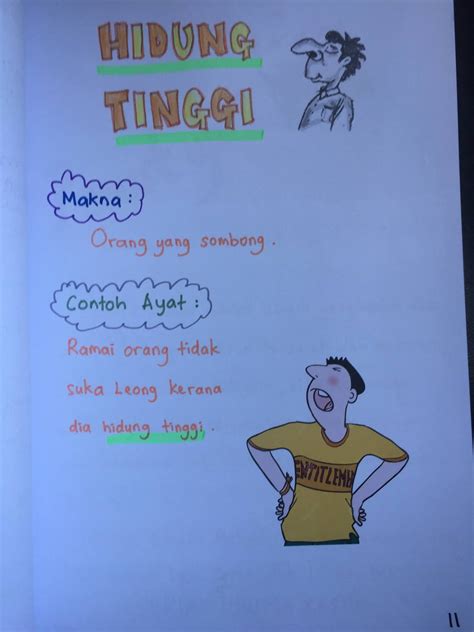 HIDUNG
TINGGI
Makna :
Orang yang sombong.
Contoh Ayat :
Ramai orang tidak
suka Leong kerana
dia hidung tinggi.
11